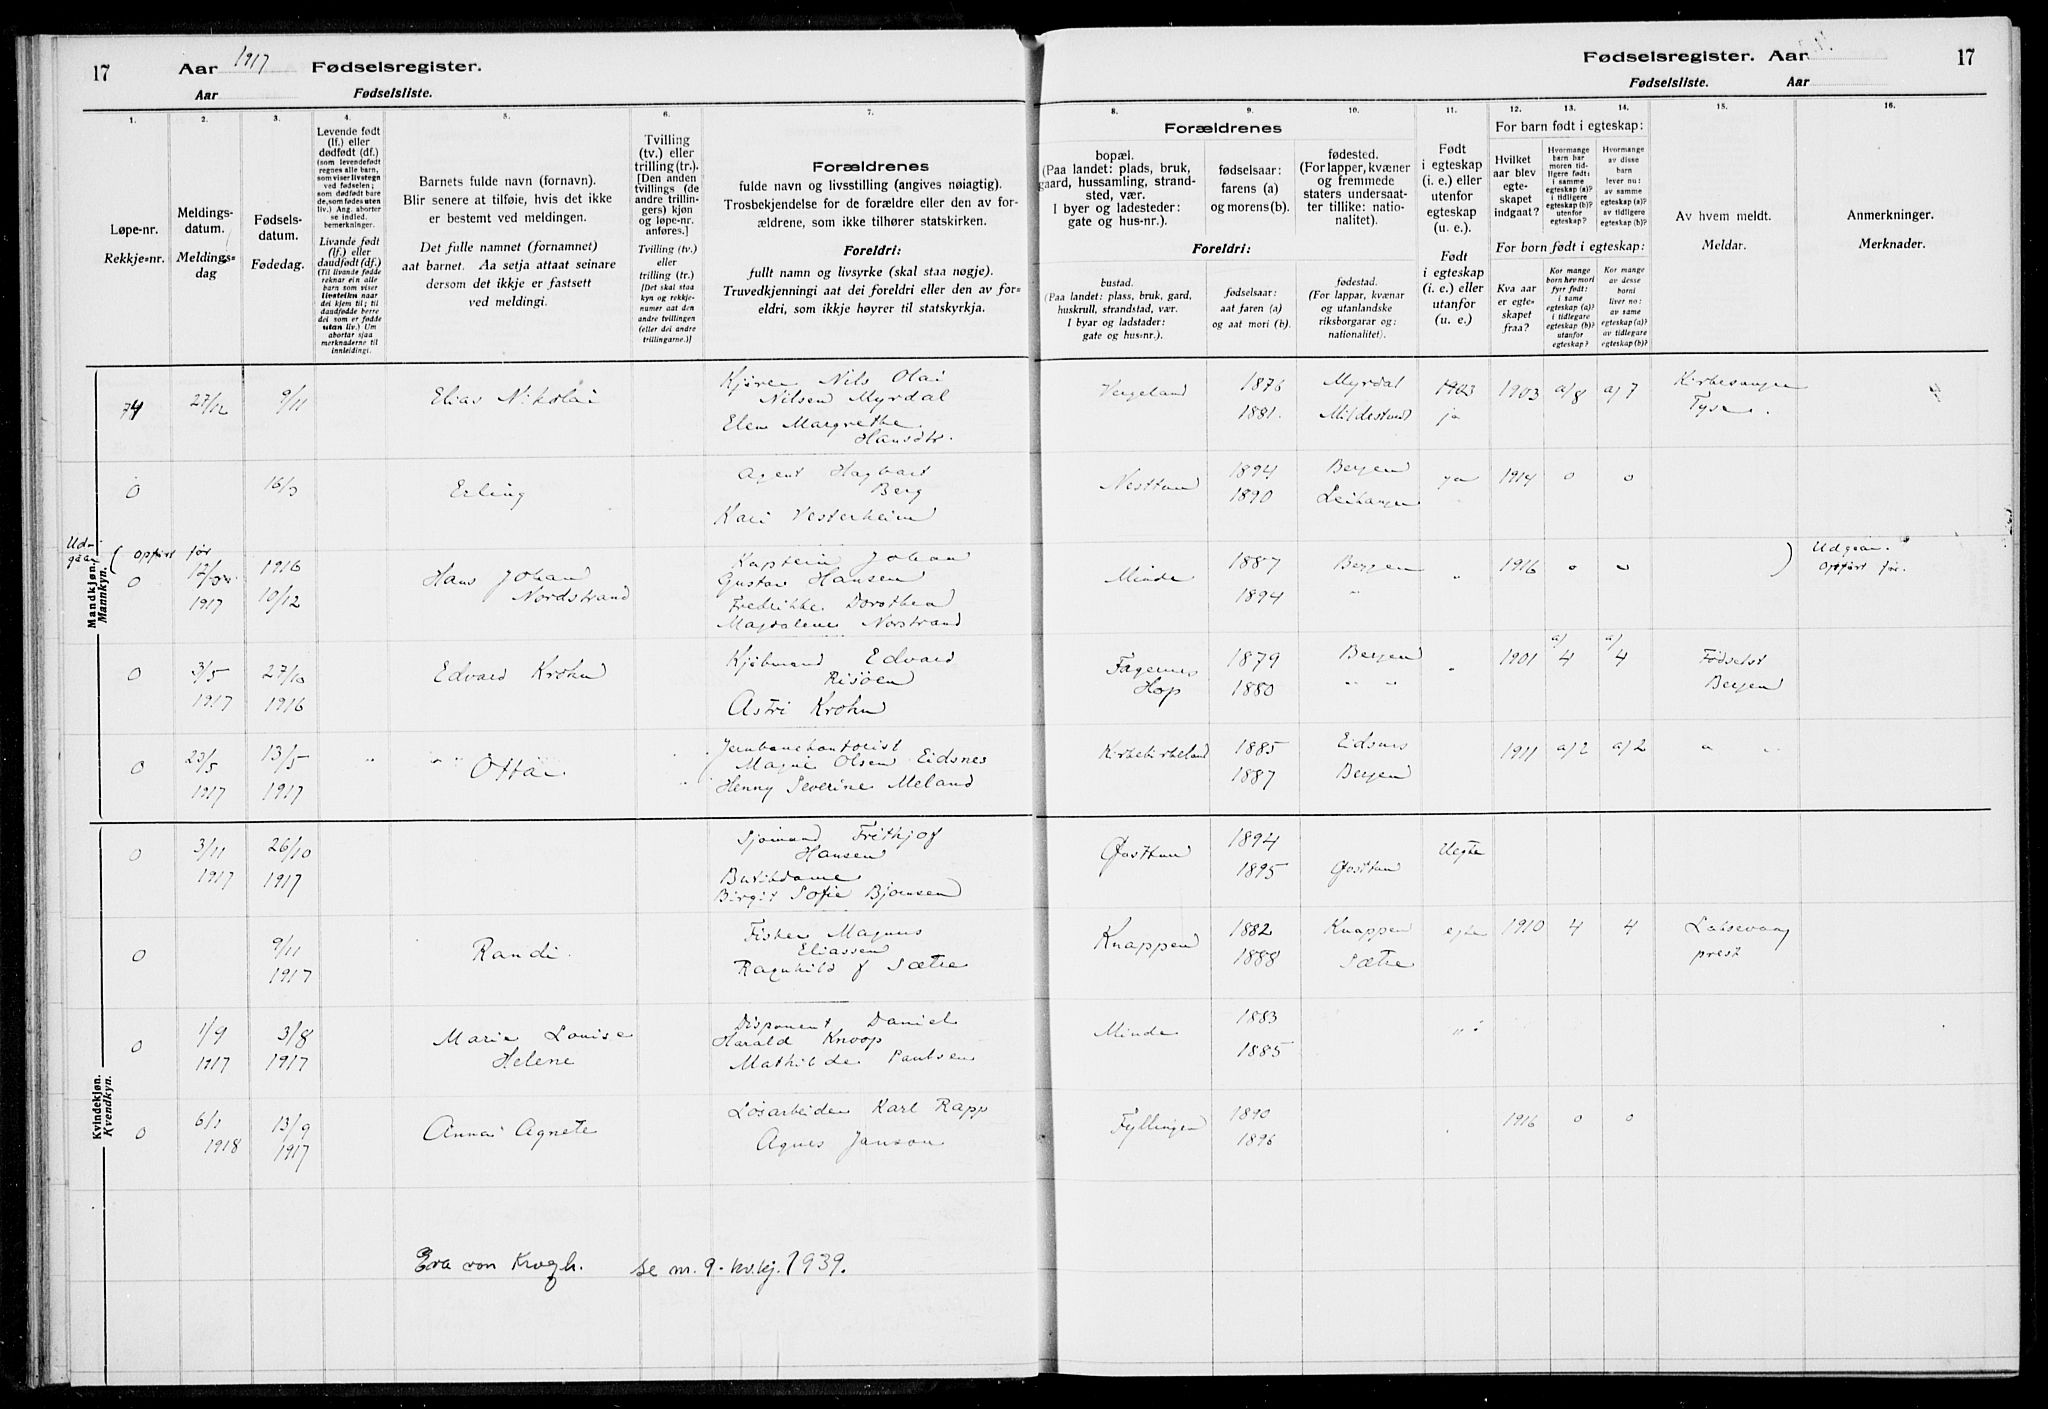 17 Aar 1917 Fødselsregister.
Aar Fødselsliste.
Fødselsregister. Aar 17
Fødselsliste. Aar
1. 2. 3. 4. 5. 6. 7. 8. 9. 10. 11. 12. 13. 14. 15. 16.
Løpe-nr.
Rekkje-nr.
Meldings-
datum.
Meldings-
dag
Fødsels-
datum.
Fødedag.
Levende født
(lf.) eller
dødfødt (df.)
(som levendefødt
regnes alle barn,
som viser livstegn
ved fødselen;
som dødfødt bare
de, som fødes uten
liv.) Ang. aborter
se indled.
bemerkninger.
Livande født
(lf.) eller
daudfødt (df.)
(Til livande fødde
reknar ein alle
barn som viser
livsteikn naar
dei kjem til; til
daudfødde berre
dei som er fødde
utan liv.) Um
abortar sjaa
merknaderne til
innleidingi.
Barnets fulde navn (fornavn).
Blir senere at tilføie, hvis det ikke
er bestemt ved meldingen.
Det fulle namnet (fornamnet)
aat barnet. Aa setja attaat seinare
dersom det ikkje er fastsett
ved meldingi.
Tvilling
(tv.) eller
trilling (tr.).
[Den anden
tvillings (de
andre trillin-
gers) kjøn
og løpe-nr.
anføres.]
Tvilling (tv.)
eller
trilling (tr.)
[Det skal staa
kyn og rekkje-
numer aat den
andre tvillingen
(eller dei andre
trillingarne.)]
Forældrenes
fulde navn og livsstilling (angives nøiagtig).
Trosbekjendelse for de forældre eller den av for-
ældrene, som ikke tilhører statskirken.
Foreldri:
fullt namn og livsyrke (skal staa nøgje).
Truvedkjenningi aat dei foreldri eller den av for-
eldri, som ikkje høyrer til statskyrkja.
Forældrenes
bopæl.
(Paa landet: plads, bruk,
gaard, hussamling, strand-
sted, vær.
I byer og ladesteder:
gate og hus-nr.).
Foreldri:
bustad.
(Paa landet: plass, bruk, gard,
huskrull, strandstad, vær.
I byar og ladstader:
gate og hus-nr.).
fødselsaar:
farens (a)
og morens (b).
fødselsaar:
aat faren (a)
og aat mori (b).
fødested.
(For lapper, kvæner
og fremmede
staters undersaat-
ter tillike: natio-
nalitet).
fødestad.
(For lappar, kvænar
og utanlandske
riksborgarar og:
nationalitet).
Født
i egteskap
(i. e.) eller
utenfor
egteskap
(u. e.).
Født
i egteskap
(i. e.) eller
utanfor
(u. e.)
For barn født i egteskap:
Hvilket
aar blev
egte-
skapet
indgaat?
Hvormange
barn har
moren tid-
ligere født:
i samme
egteskap (a)?
i tidligere
egteskap (b)?
utenfor
egteskap?
Hvormange
av disse
barn
lever nu:
av samme
egteskap (a)?
av tidligere
egteskap (b)?
For born født i egteskap:
Kva aar
er egte-
skapet
fraa?
Kor mange
born hev mori
fyrr født:
i same
egteskap (a)?
i tidlegare
egteskap (b)?
utanfor
egteskap?
Kor mange
av desse
borni
liver no:
av same
egteskap (a)?
av tidlegare
egteskap (b)?
Av hvem meldt.
Meldar.
Anmerkninger.
Merknader.
Mandkjøn.
Mannkyn.
74 27/12 9/11 Elias Nikolai
Nils Olai
Nilsen Myrdal
Elen Margrethe
Hansdtr.
1876 Myrdal 1903 1903 a/8 a/7 Kirkesanger
1881. Mildestvedt ja
0 16/3 Erling
Agent Hagbart
Berg
Kari Vesterheim
Nesttun 1894 Bergen ja 1914 0 0
1890 Leikanger
Ud-
gaar ( Opført før
0 1916
1917 10/12
Hans Johan
Nordstrand
Kaptein Johan
Gustav Hansen
Fredrikke Dorothea
Magdalene Norstrand
Minde 1887 Bergen " 1916 0 0 ) Udgaar.
1894 " Opført før.
0 3/5 27/10 Edvard Krohn
1917 1916
Kjøbmand Edvard
Risøen
Astri Krohn
Fagernes 1879 Bergen " 1901 a/4 a/4 Fødselst
Hop 1880 " " Bergen
0 23/5 13/5 " " " Ottar
1917 1917
Jernbanekontorist
Magne Olsen Eidsnes
Henny Severine Meland
Kirkebirkeland 1885 Eidsnes 1911 a/2 a/2 " "
1887 Bergen
Kvindekjøn.
Kvendkyn.
0 3/11 26/10
1917 1917
Sjømand Frithjof
Hansen
Butikdame
Birgit Sofie Bjørnsen
Øvsttun 1894 Uegte
1895 Øvsttun
0 9/11 Randi.
1917
Fisker Magnus
Eliassen
Ragnhild f Sætre
Knappen 1882 Knappen egte 1910 4 4 Laksevaag
1888 Sætre prest
0 1/9 3/8 Marie Louise
1917 1917 Helene
Disponent Daniel
Harald Knoop
Mathilde Paulsen
Minde 1883 "
1885
0 6/1 13/9 Anna Agnete
1918 1917
Løsarbeider Karl Rapp
Agnes Janson
Fyllingen 1890 1916 0 0
1896
Eva von Krogh. se nr. 9. kv.kj. 1939.